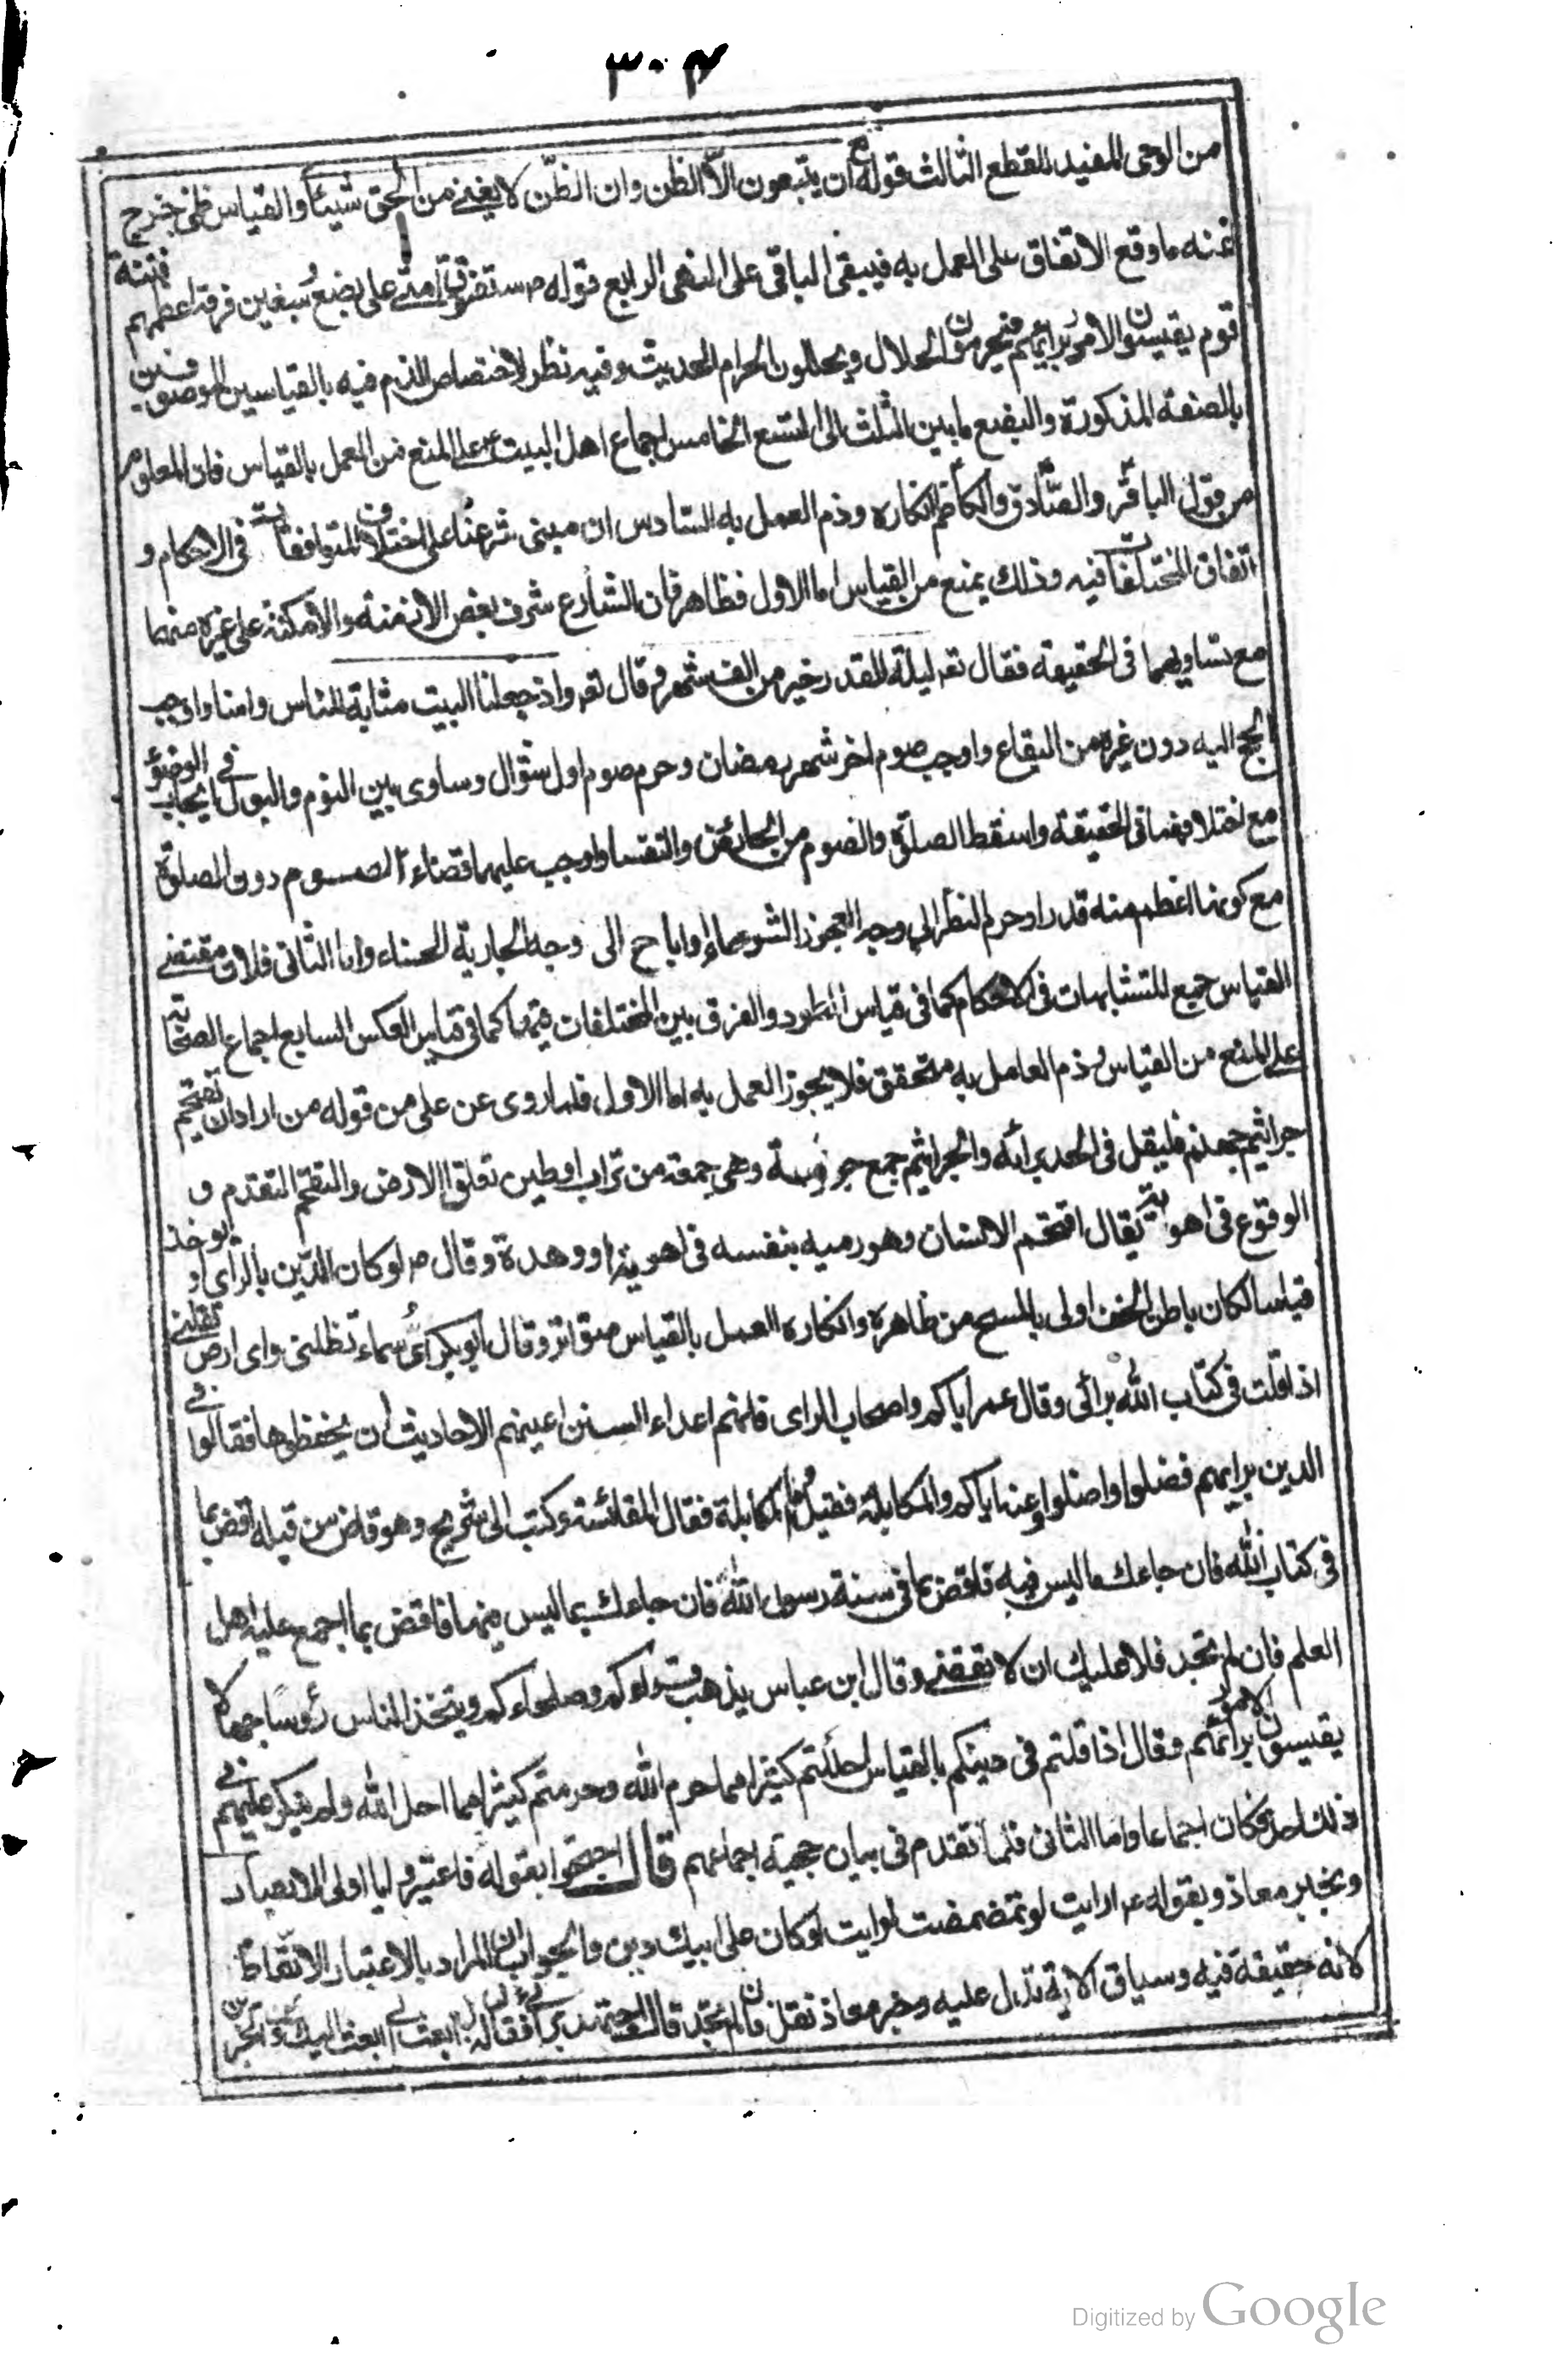 ٣٠٢
من الوحى المفيد للقطع الثالث قوله تع ان يتبعون الّا الظن وان الظّن لا يغنى من الحق شيئاً والقياس ظنى خرج
عنه ما وقع الاتفاق على العمل به فيبقى الباقى على النهى الرابع قوله ص ستفترق امتى على بضع و سبعين فرقة اعظمهم فتنة
قوم يقيسون الامور برأيهم فيحرمون الحلال ويحللون الحرام الحديث وفيه نظر لاختصاص الذم فيه بالقياسين الموصوفين
بالصفة المذكورة والبضع ما بين الثلث الى التسع الخامس اجماع اهل البيت ع على المنع من العمل بالقياس فان المعلوم
من قول الباقر والصّادق والكاظم انكاره وذم العمل به السادس ان مبنى شرعنا على اختلاف المتوافقات فى الاحكام و
اتفاق المختلفات فيه وذلك يمنع من القياس اما الاول فظاهر فان الشارع شرف بعض الازمنة والامكنة على غيره منهما
مع تساويهما فى الحقيقة فقال تعر ليلة القدر خير من الف شهر وقال تعر واذ جعلنا البيت مثابة للناس وامنا واوجب
الحج اليه دون غيره من البقاع واوجب صوم اخر شهر رمضان وحرم صوم اول شوال وساوى بين النوم والبول فى ايجاب الوضوء
مع اختلافهما فى الحقيقة واسقط الصلوة والصوم من الحائض والنفسا واوجب عليهما قضاء الصوم دون الصلوة
مع كونها اعظم منه قدرا وحرم النظر الى وجه العجوز الشوهاء واباح الى وجه الجارية الحسناء واما الثانى فلان مقتضى
القياس جميع المتشابهات فى الاحكام كما فى قياس الطرد والفرق بين المختلفات فيها كما فى قياس العكس السابع اجماع الصحابة
على المنع من القياس وذم العامل به متحقق فلا يجوز العمل به اما الاول فلما روى عن على من قوله من اراد ان يقتحم
جراثيم جهنم فليقل فى الجد برأئه والجراثيم جمع جرثومة وهى جمعة من تراب او طين تعلق الارض والتقحم التقدم و
الوقوع فى اهوية يقال اقتحم الانسان وهو رميه بنفسه فى اهوية او وهدة وقال ص لو كان الدّين بالرأى او يوخذ
قياسا لكان باطن الخف اولى بالمسح من ظاهره وانكاره العمل بالقياس متواتر وقال ابو بكر اىّ سماء تظلنى واى ارض تقلنى
اذا قلت فى كتاب الله برائى وقال عمر اياكم واصحاب الراى فانهم اعداء السنن اعيتهم الاحاديث ان يحفظوها فقالوا فى
الدين برايهم فضلوا واضلوا وعنه اياكم والمكايلة فقيل وما المكايلة فقال المقائسة وكتب الى شريح وهو قاض من قبله اقض بما
فى كتاب الله فان جاءك ما ليس فيه فاقض بما فى سنة رسول الله فان جاءك بما ليس فيهما فاقض بما اجمع عليه اهل
العلم فان لم تجد فلا عليك ان لا تقضى وقال ابن عباس يذهب قراوكم وصلحاءكم ويتخذ الناس رؤسا جهالا
يقيسون الامور برائهم وقال اذا قلتم فى دينكم بالقياس احللتم كثيرا مما حرم الله وحرمتم كثيرا مما احل الله ولم ينكر عليهم فى
ذلك احد فكان اجماعا واما الثانى فلما تقدم فى بيان حجية اجماعهم قال احتجوا بقوله فاعتبروا يا اولى الابصار
وبخبر معاذ وبقوله ع ارايت لو تمضمضت ارايت لو كان على ابيك دين والجواب ان المراد بالاعتبار الاتّعاظ
لانه حقيقة فيه وسياق الاية تدل عليه وخبر معاذ نقل فان لم تجد قال اجتهد رأئى فقال لا بل ابعث الى ابعث اليك
Digitized by Google